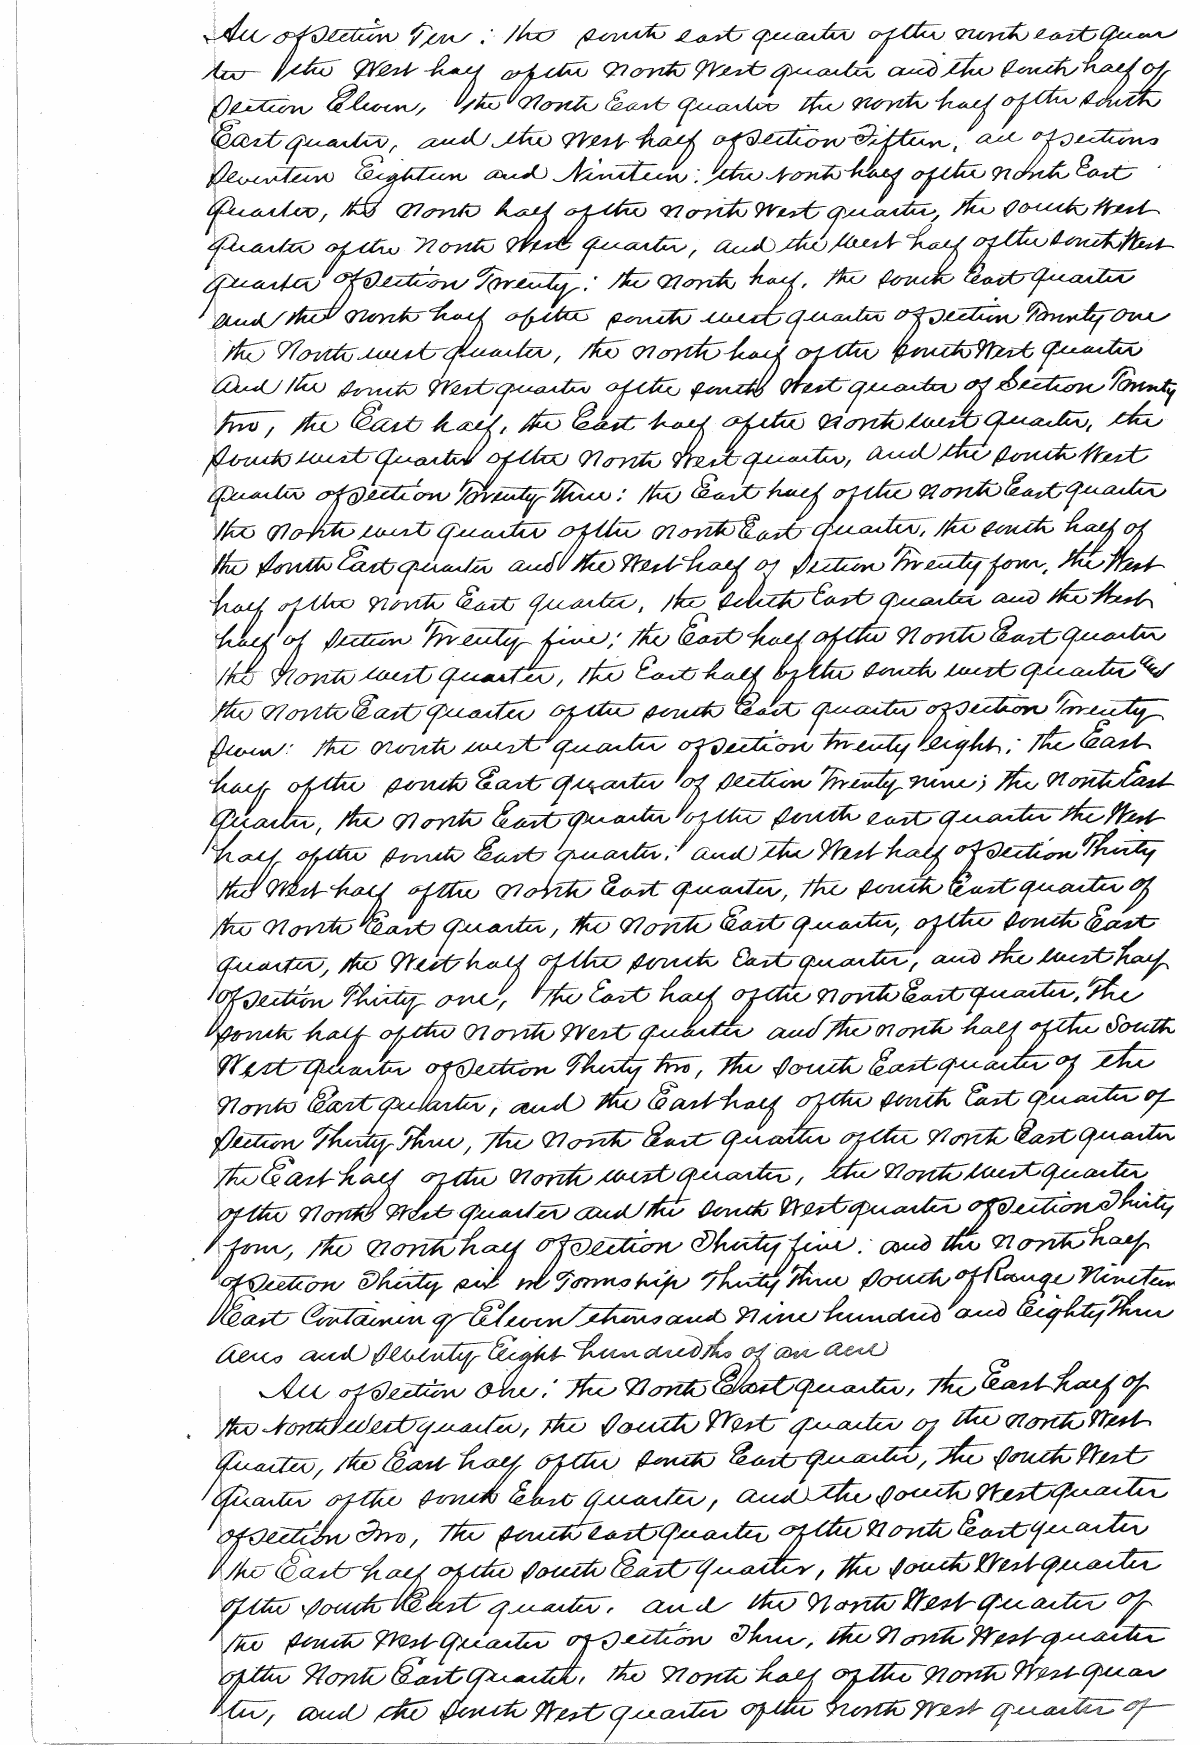 All of Section Ten: the south east quarter of the north east quar
ter the West half of the North West quarter and the south half of
Section Eleven, the North East quarter the north half of the south
East quarter, and the West half of Section Fifteen, all of sections
Seventeen Eighteen and Nineteen: the North half of the north East
Quarter, the North half of the North West quarter, the south West
Quarter of the North West quarter, and the West half of the South West
Quarter of Section Twenty: the North half, the south East quarter
and the north half of the south west quarter of Section Twenty one
the North west quarter, the north half of the south West quarter
And the south West quarter of the south West quarter of Section Twenty
two, the East half, the East half of the North west quarter, the
south west quarter of the North West quarter, and the south West
Quarter of Section Twenty Three: the East half of the North East quarter
the North west quarter of the North East quarter, the south half of
the South East quarter and the West half of Section Twenty four, the West
half of the North East quarter, the south East quarter and the West
half of Section Twenty five; the East half of the North East quarter
the North west quarter, the East half of the south west quarter and
the North East quarter of the south East quarter of Section Twenty
Seven: the north west quarter of section twenty eight; the East
half of the south East quarter of Section Twenty nine; the North East
Quarter, the North East quarter of the south east quarter the West
half of the south East quarter, and the West half of Section Thirty
the West half of the North East quarter, the south East quarter of
the North East quarter, the North East quarter, of the south East
quarter, the West half of the south East quarter, and the west half
of Section Thirty one, the East half of the North East quarter, the
south half of the North West quarter and the north half of the South
West quarter of Section Thirty two, the South East quarter of the
North East quarter, and the East half of the south East quarter of
Section Thirty Three, the North East quarter of the North East quarter
the East half of the North west quarter, the North west quarter
of the North West quarter and the south West quarter of Section Thirty
four, the North half of Section Thirty five: and the North half
of Section Thirty six in Township Thirty Three South of Range Nineteen
East Containing Eleven thousand Nine hundred and Eighty Three
Acres and Seventy Eight hundredths of an acre
All of Section One: the North East quarter, the East half of
the North West quarter, the South West quarter of the North West
Quarter, the East half of the south East quarter, the South West
Quarter of the south East quarter, and the South West quarter
of Section Two, the south east quarter of the North East quarter
the East half of the South East quarter, the South West quarter
of the South East quarter, and the North West quarter of
the south West quarter of Section Three, the North West quarter
of the North East quarter, the North half of the North West quar
ter, and the South West quarter of the North West quarter of